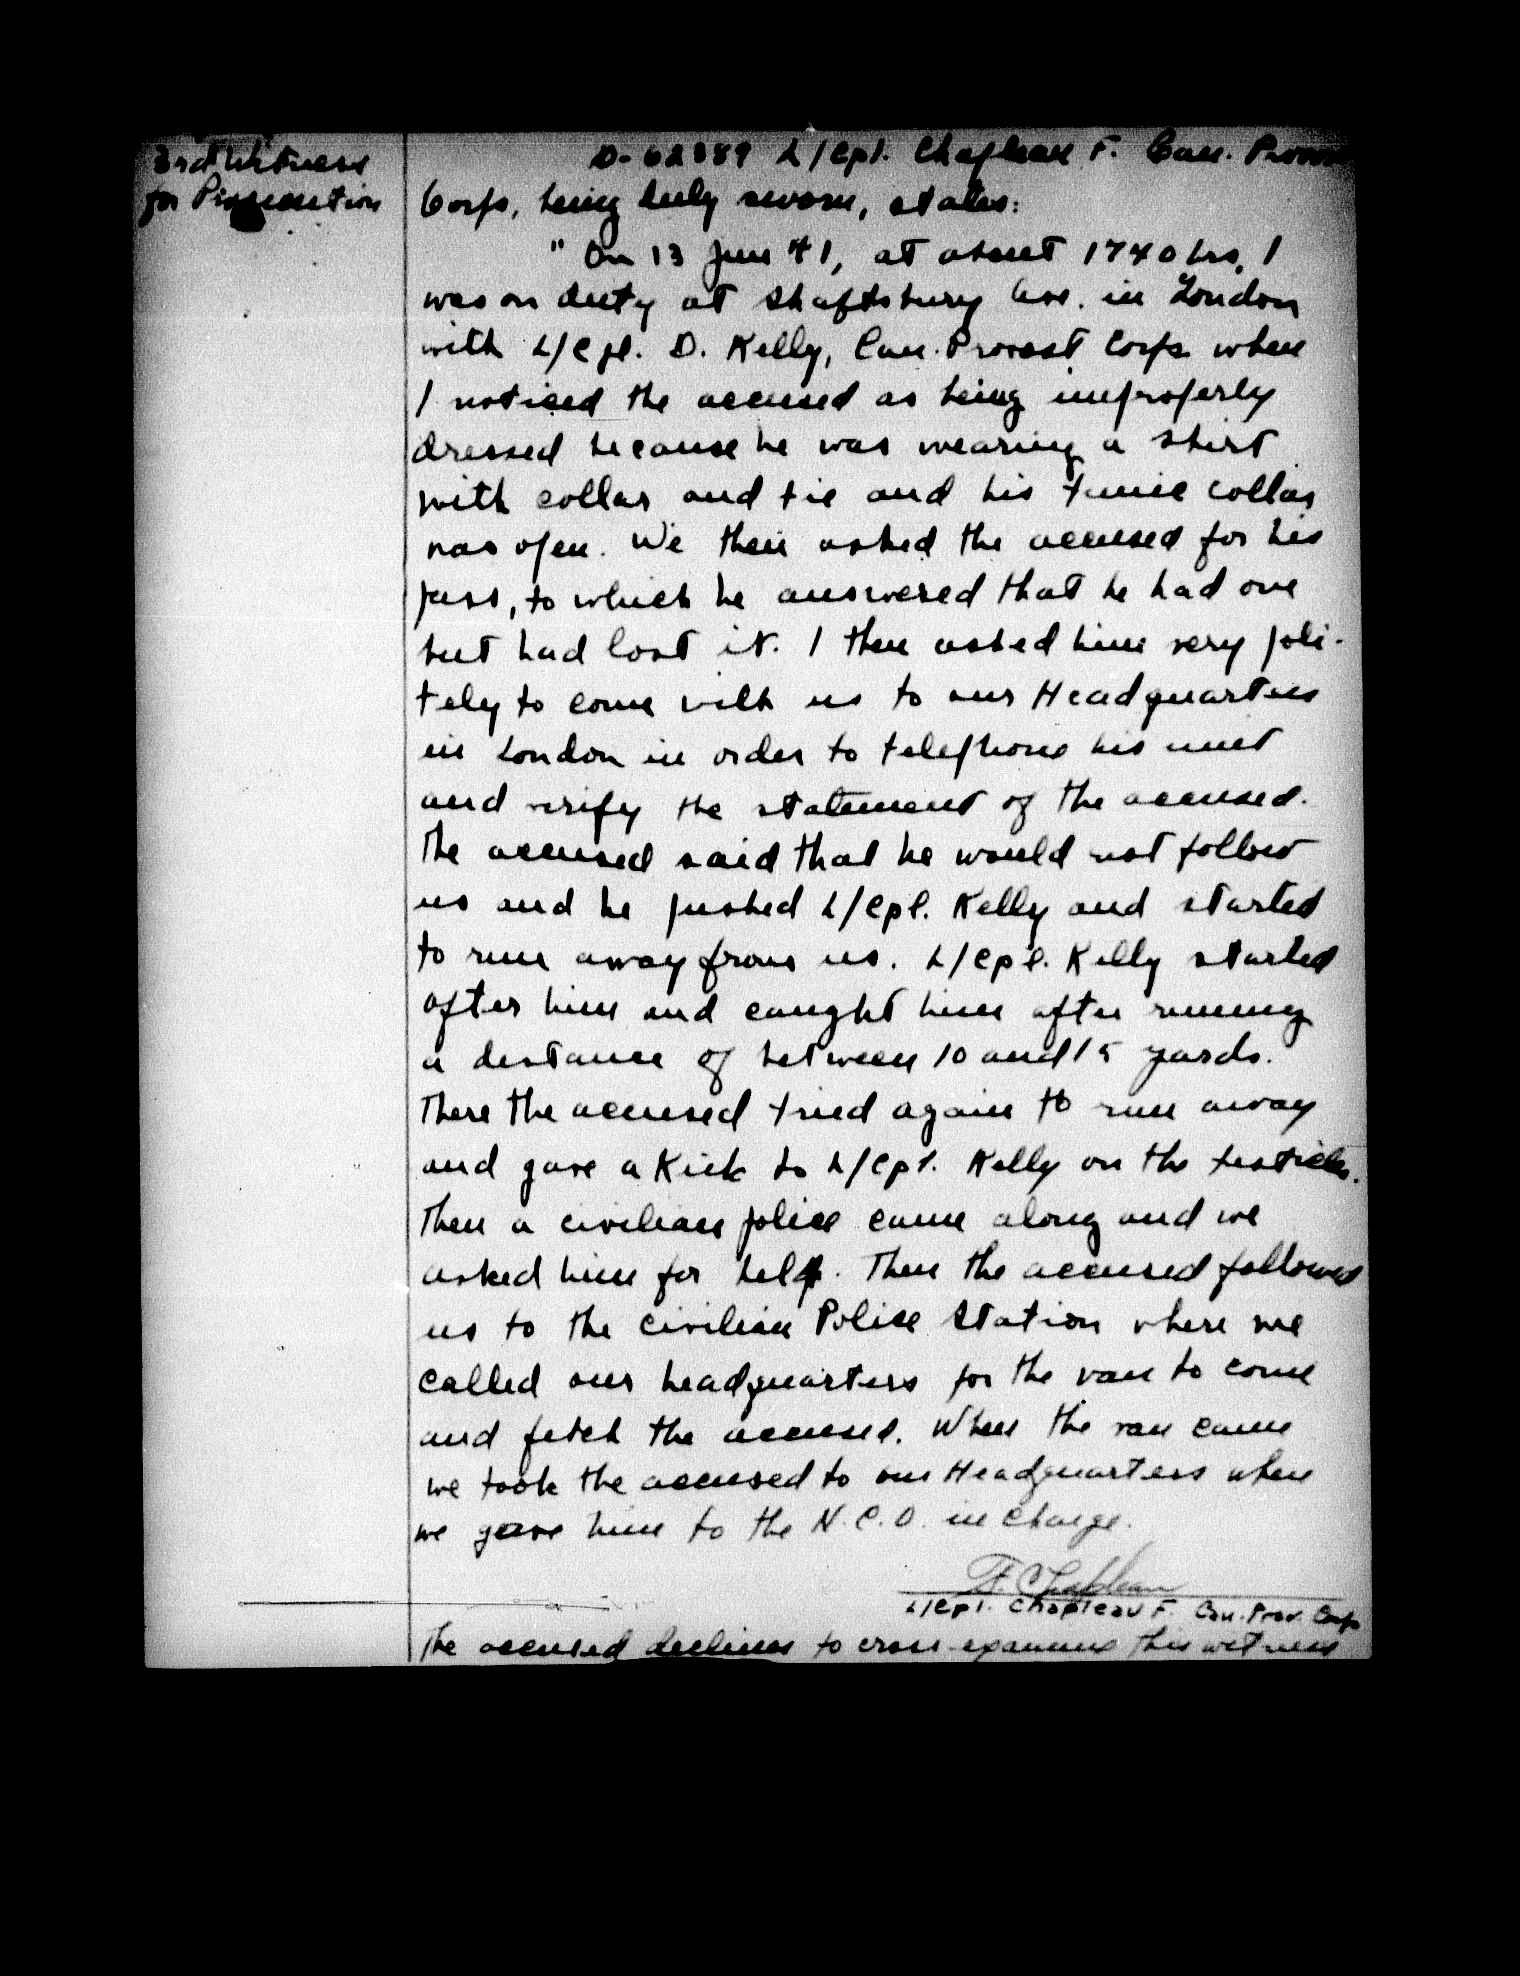 3rd Witness
for Prosecution
D-62389 L/Cpl. Chapleau F. Can. Provost
Corps, being duly sworn, states:
" On 13 Jun 41, at about 1740 hrs, I
was on duty at Shaftsbury Ave. in London
with L/Cpl. D. Kelly, Can. Provost Corps. when
I noticed the accused as being improperly
dressed because he was wearing a shirt
with collar and tie and his tunic collar
was open. We then asked the accused for his
pass, to which he answered that he had one
but had lost it. I then asked him very poli-
tely to come with us to our Headquarters
in London in order to telephone his unit
and verify the statement of the accused.
The accused said that he would not follow
us and he pushed L/Cpl. Kelly and started
to run away from us. L/Cpl. Kelly started
after him and caught him after running
a distance of between 10 and 15 yards.
There the accused tried again to run away
and gave a Kick to L/Cpl. Kelly on the testicles.
Then a civilian police came along and we
asked him for help. Then the accused followed
us to the civilian Police Station where we
called our headquarters for the van to come
and fetch the accused. When the van came
we took the accused to our Headquarters where
we gave him to the N.C.O. in charge.
F. Chapleau
L/Cpl. Chapleau F. Can. Prov. Corps
The accused declines to cross-examine this witness